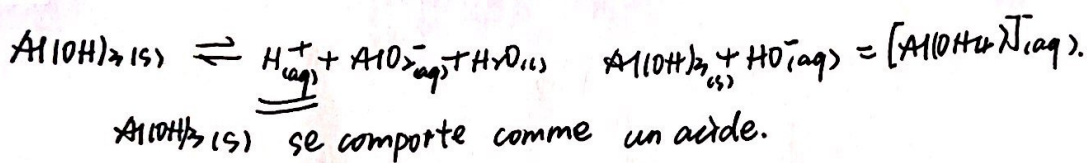 Al(OH)₃(s) ⇌ H⁺(aq) + AlO₂⁻(aq) + H₂O(l) Al(OH)₃(s) + HO⁻(aq) = [Al(OH)₄]⁻(aq).
Al(OH)₃(s) se comporte comme un acide.